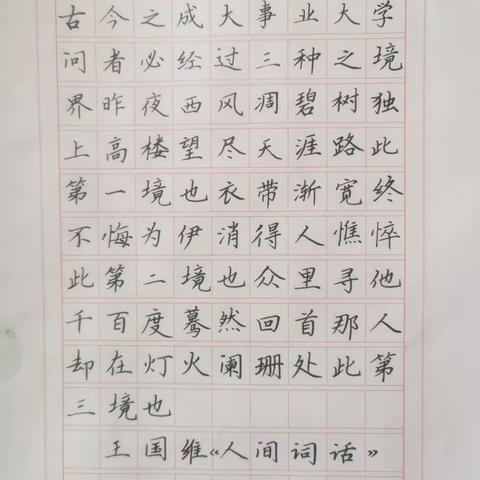 古今之成大事业大学
问者必经过三种之境
界昨夜西风凋碧树独
上高楼望尽天涯路此
第一境也衣带渐宽终
不悔为伊消得人憔悴
此第二境也众里寻他
千百度蓦然回首那人
却在灯火阑珊处此第
三境也
王国维《人间词话》